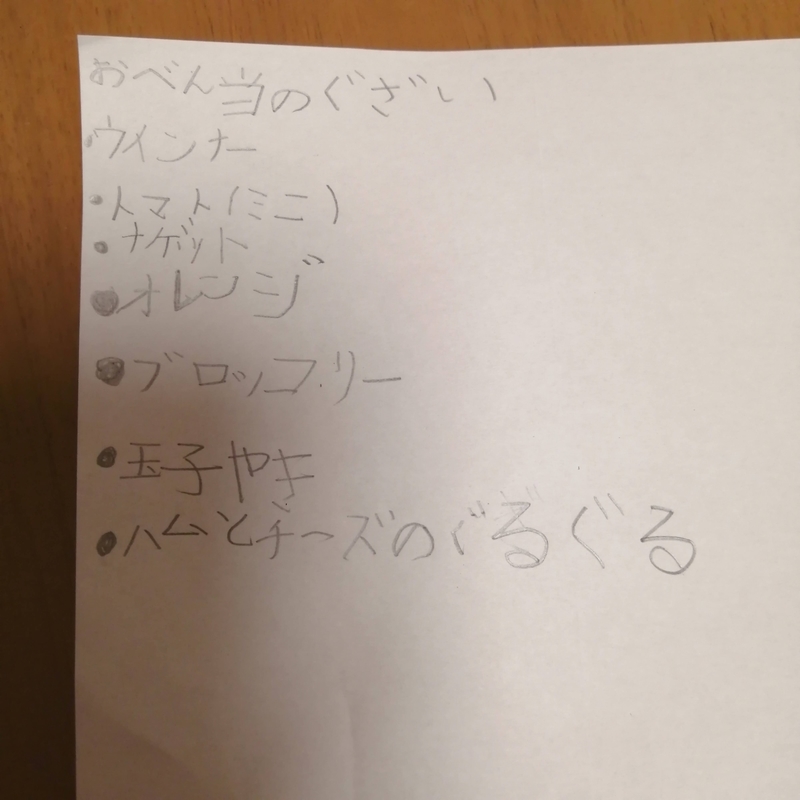 おべん当のぐざい
・ウインナー
・トマト(ミニ)
・ナゲット
・オレンジ
・ブロッコリー
・玉子やき
・ハムとチーズのぐるぐる